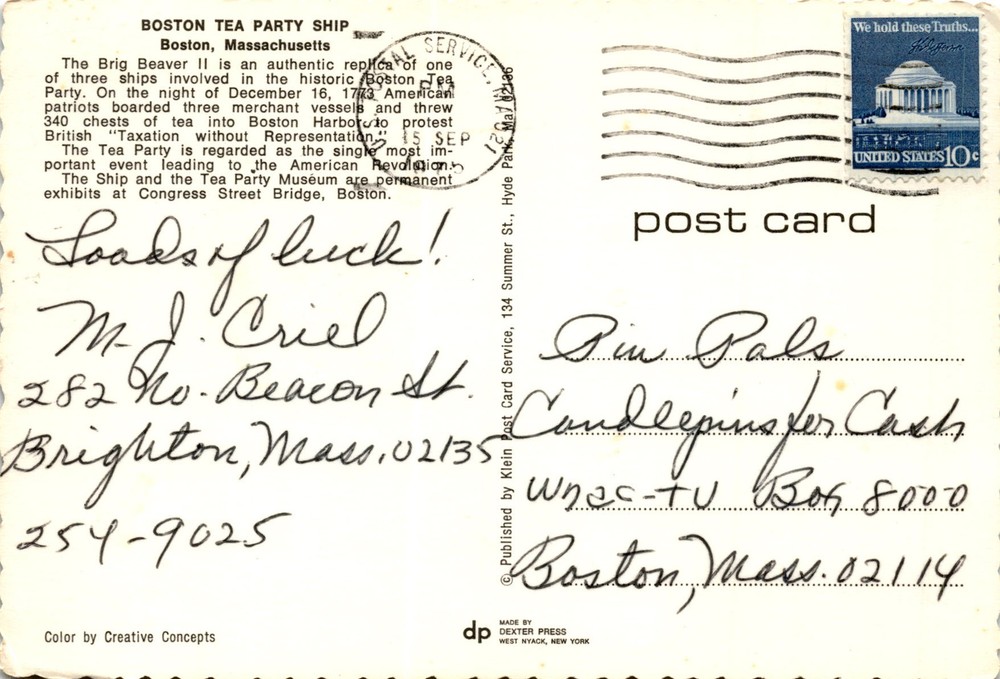 BOSTON TEA PARTY SHIP
Boston, Massachusetts
The Brig Beaver II is an authentic replica of one
of three ships involved in the historic Boston Tea
Party. On the night of December 16, 1773 American
patriots boarded three merchant vessels and threw
340 chests of tea into Boston Harbor to protest
British "Taxation without Representation."
The Tea Party is regarded as the single most im-
portant event leading to the American Revolution.
The Ship and the Tea Party Museum are permanent
exhibits at Congress Street Bridge, Boston.
U.S. POSTAL SERVICE, MA 021
PM
15 SEP
We hold these Truths...
UNITED STATES 10c
post card
Loads of luck!
M. J. Criel
282 No. Beacon St.
Brighton, Mass. 02135
254-9025
© Published by Klein Post Card Service, 134 Summer St., Hyde Park, Ma. 02136
Pin Pals
Candlepins for Cash
WNAC-TV Box 8000
Boston, Mass. 02114
Color by Creative Concepts
dp
MADE BY
DEXTER PRESS
WEST NYACK, NEW YORK